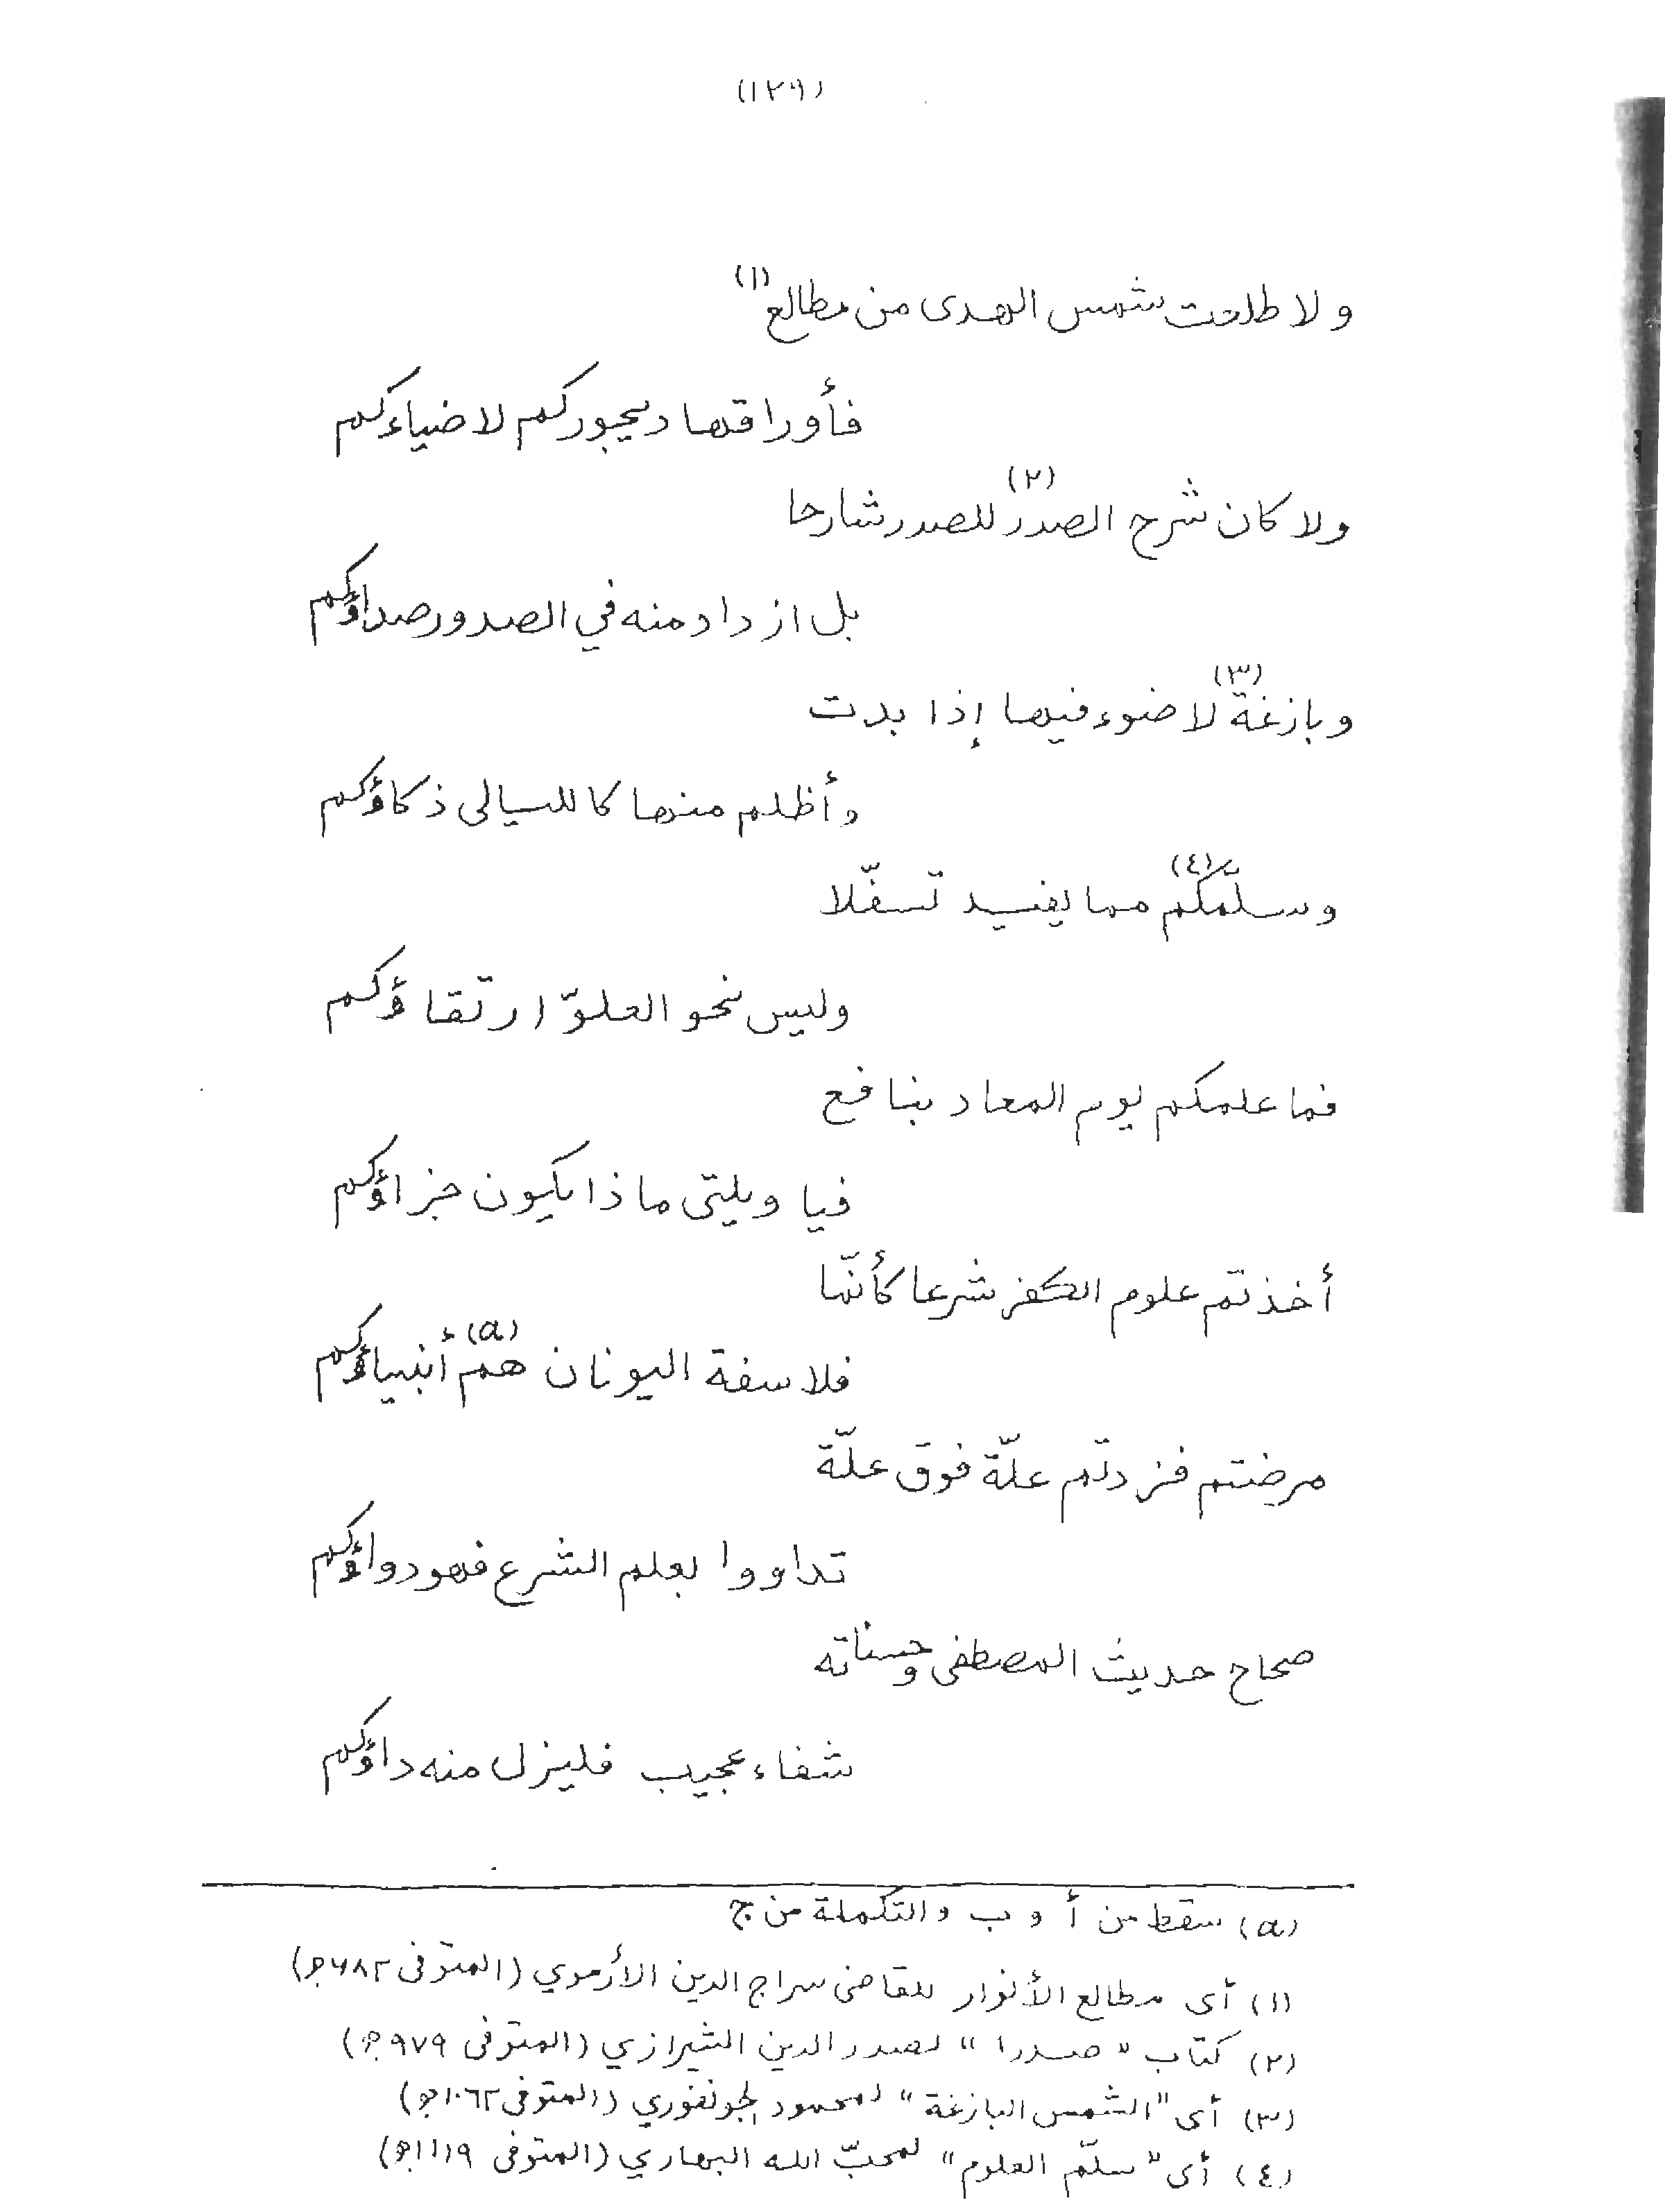 (١٢٩)
ولا طلعت شمس الهدى من مطالع (١)
فأوراقها ديجوركم لا ضياءكم
ولا كان شرح الصدر (٢) للصدر شارحا
بل ازداد منه في الصدور صداؤكم
وبازغة (٣) لا ضوء فيها إذا بدت
وأظلم منها كالليالى ذكاؤكم
وسلّمكم (٤) مما يفيد تسفّلا
وليس نحو العلوّ ارتقاؤكم
فما علمكم يوم المعاد بنافع
فيا ويلتى ماذا يكون جزاؤكم
أخذتم علوم الكفر شرعا كأنّما
فلاسفة اليونان همّ (a) أنبياؤكم
مرضتم فزدتم علّة فوق علّة
تداووا بعلم الشرع فهو دواؤكم
صحاح حديث المصطفى وحسناته
شفاء عجيب فليزل منه داؤكم
(a) سقط من أ و ب والتكملة من ج
(١) أى مطالع الأنوار للقاضى سراج الدين الأرموي (المتوفى ٦٨٢ھ)
(٢) كتاب "صدرا" لصدر الدين الشيرازي (المتوفى ٩٧٩ھ)
(٣) أى "الشمس البازغة" لمحمود الجونفوري (المتوفى ١٠٦٢ھ)
(٤) أى "سلّم العلوم" لمحبّ الله البهاري (المتوفى ١١١٩ھ)